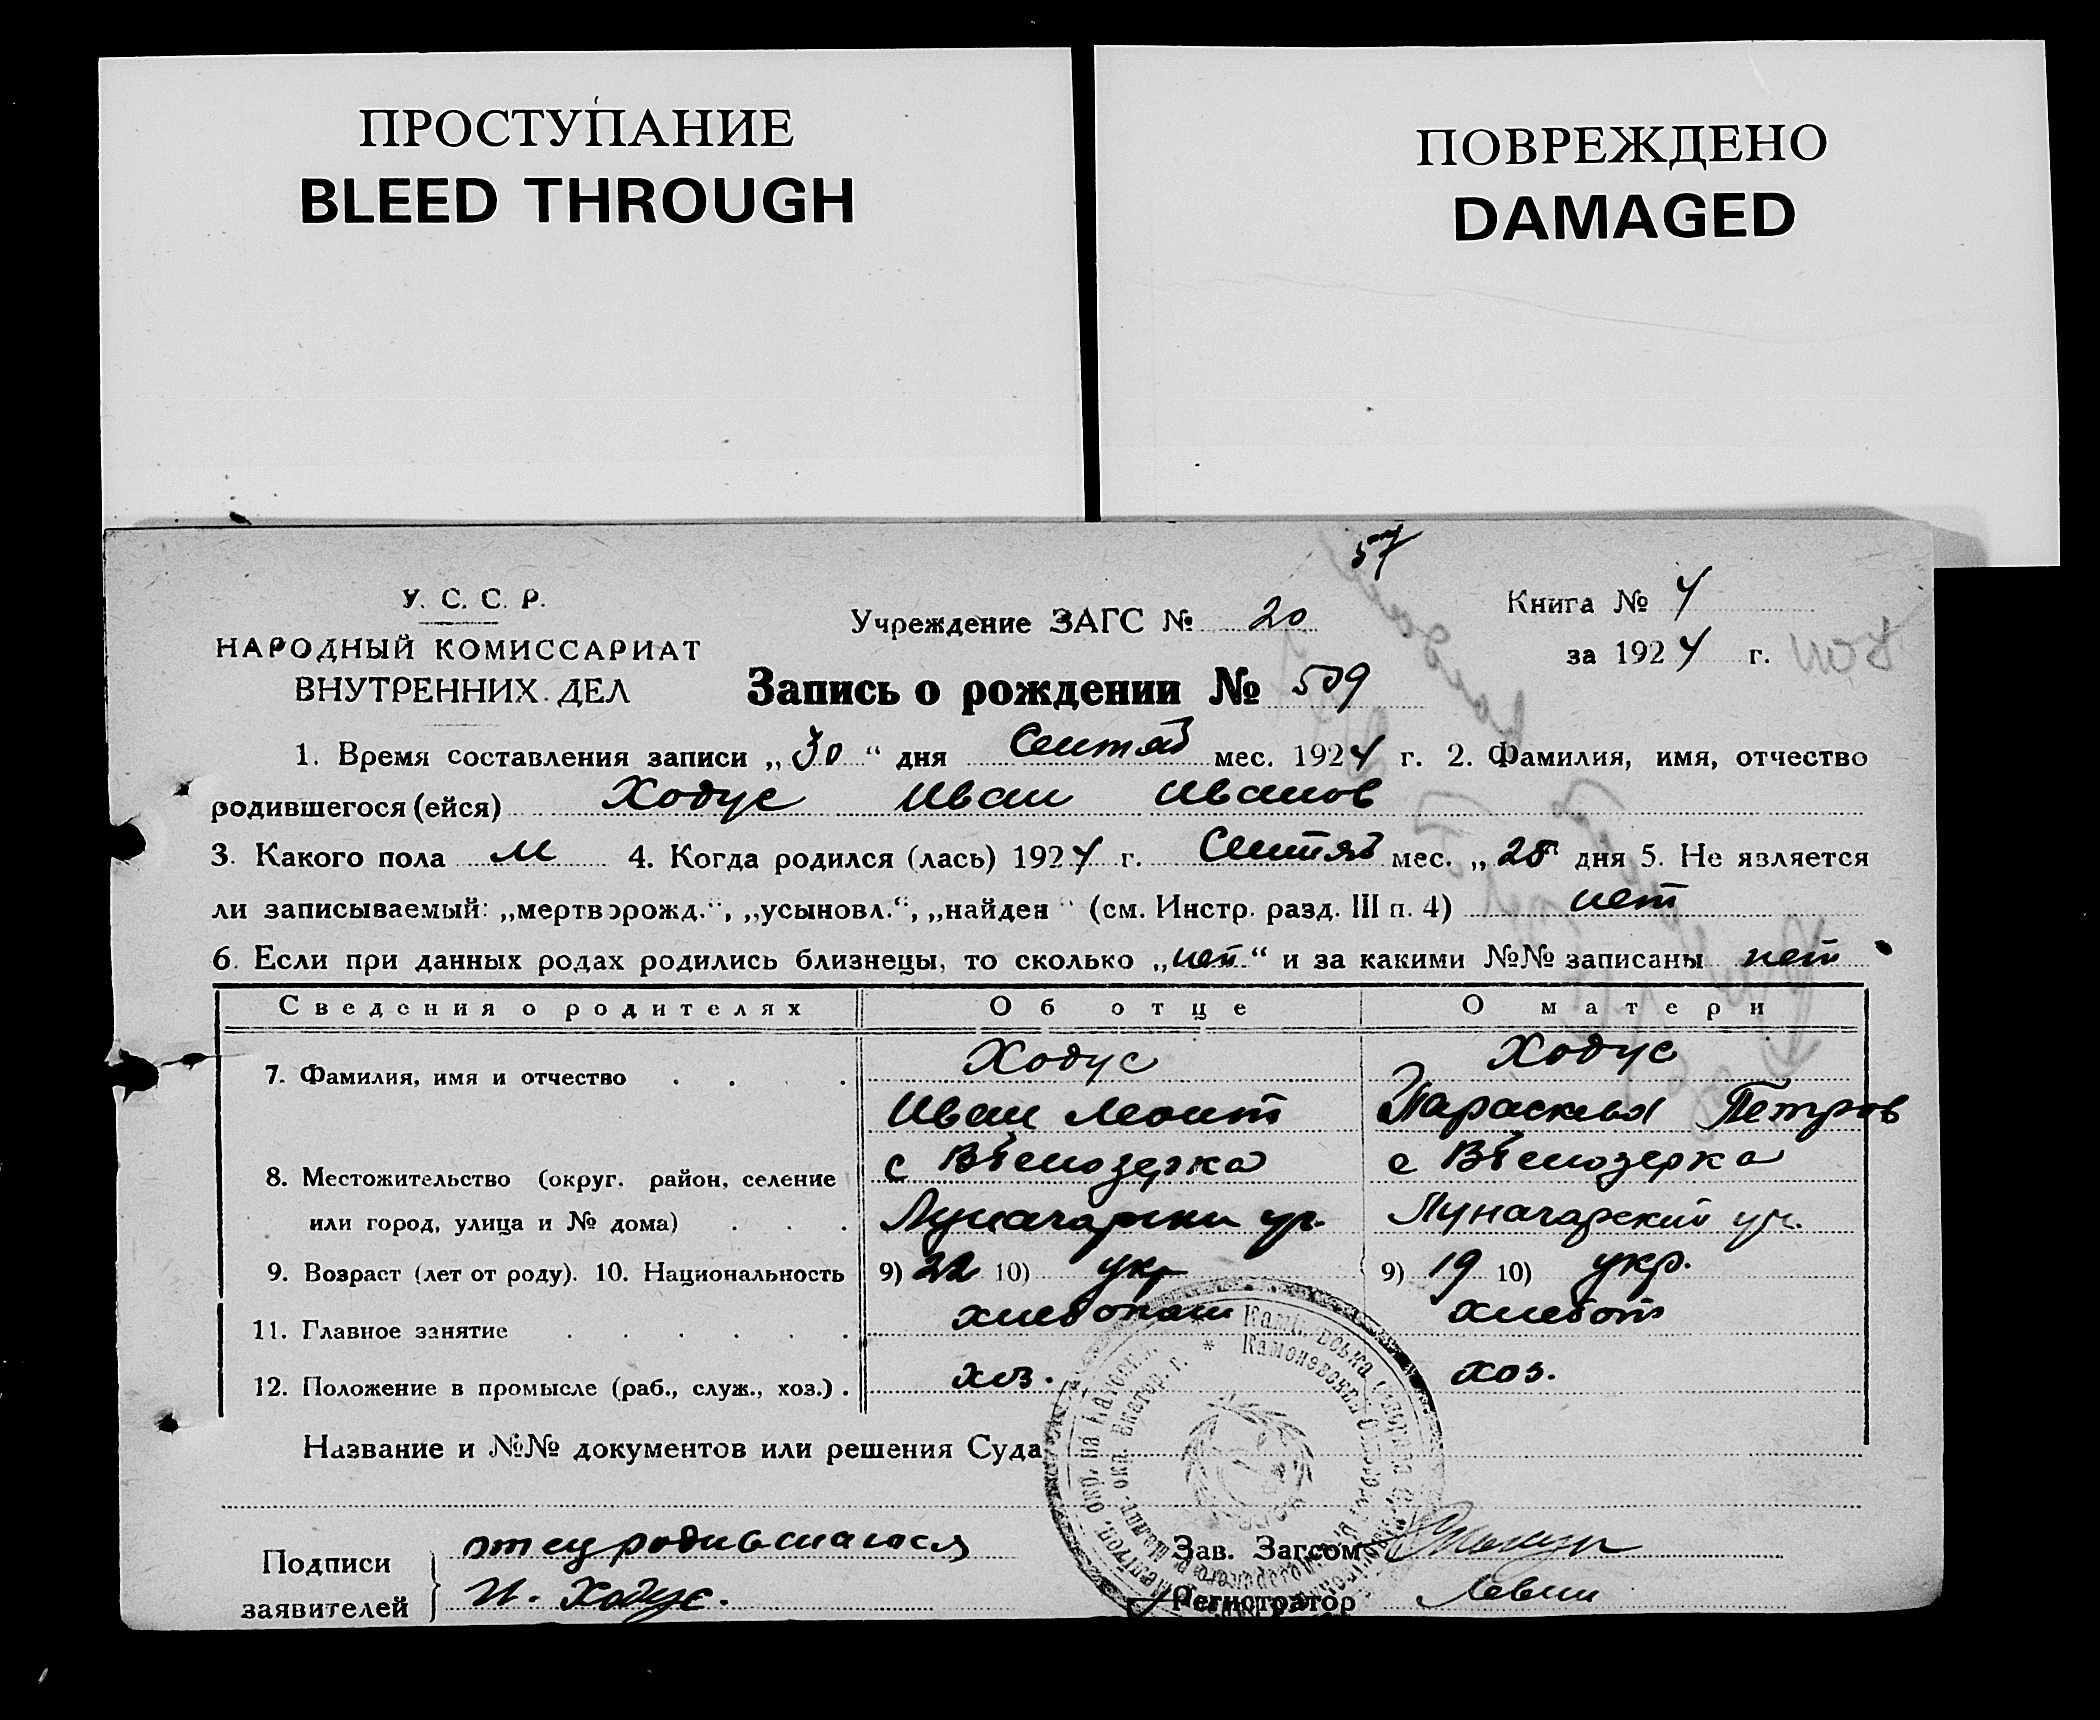 ПРОСТУПАНИЕ
BLEED THROUGH
ПОВРЕЖДЕНО
DAMAGED
57
У. С. С. Р.
НАРОДНЫЙ КОМИССАРИАТ
ВНУТРЕННИХ ДЕЛ
Учреждение ЗАГС № 20
Книга № 4
за 1924 г.
Запись о рождении № 509
1. Время составления записи „30“ дня Сентяб мес. 1924 г. 2. Фамилия, имя, отчество
родившегося (ейся) Ходус Иван Иванов
3. Какого пола м 4. Когда родился (лась) 1924 г. Сентяб мес. „25 дня 5. Не является
ли записываемый: „мертворожд.“, „усыновл.“, „найден“ (см. Инстр. разд. III п. 4) нет
6. Если при данных родах родились близнецы, то сколько „нет“ и за какими №№ записаны нет
Сведения о родителях Об отце О матери
7. Фамилия, имя и отчество . . . . Ходус Ходус
Иван Леонт Параскевья Петров
8. Местожительство (округ. район, селение с Вбелозерка с Вбелозерка
или город, улица и № дома) . . . Луначарски ул. Луначарский ул.
9. Возраст (лет от роду). 10. Национальность 9) 22 10) укр 9) 19 10) укр.
11. Главное занятие . . . . . . хлебопаш хлебоп
12. Положение в промысле (раб., служ., хоз.) . хоз. хоз.
Название и №№ документов или решения Суда
Подписи
заявителей
отец родившагося
И. Ходус.
Зав. Загсом
Регистратор Левин